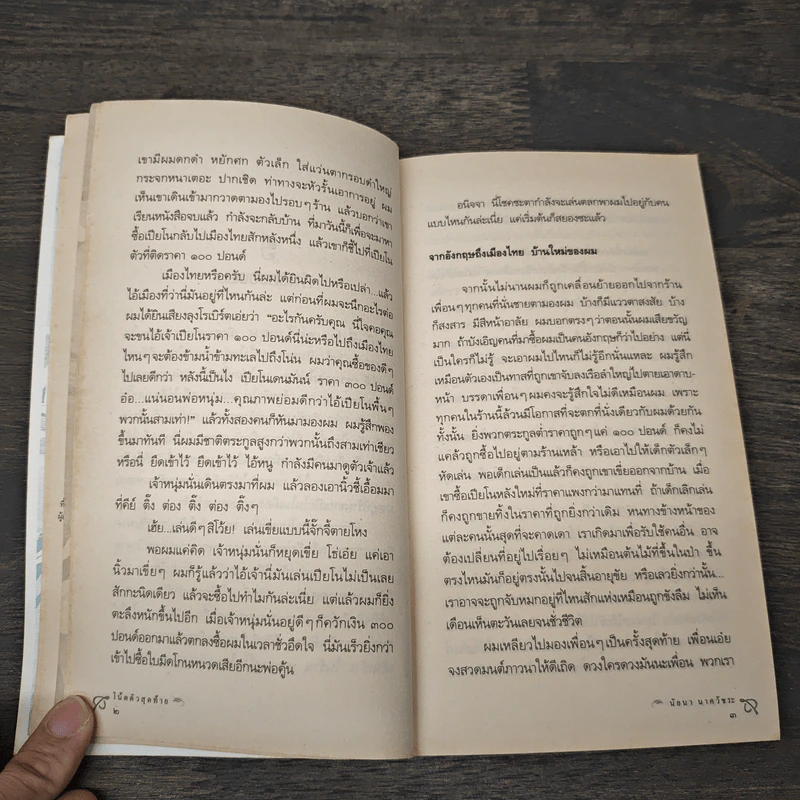 เขามีผมดกดำ หยักศก ตัวเล็ก ใส่แว่นตากรอบดำใหญ่
กระจกหนาเตอะ ปากเชิด ท่าทางจะหัวรั้นเอาการอยู่ ผม
เห็นเขาเดินเข้ามากวาดตามองไปรอบๆ ร้าน แล้วบอกว่าเขา
เรียนหนังสือจบแล้ว กำลังจะกลับบ้าน ที่มาวันนี้ก็เพื่อจะมาหา
ซื้อเปียโนกลับไปเมืองไทยสักหลังหนึ่ง แล้วเขาก็ชี้ไปที่เปียโน
ตัวที่ติดราคา ๑๐๐ ปอนด์
เมืองไทยหรือครับ นี่ผมได้ยินผิดไปหรือเปล่า...แล้ว
ไอ้เมืองที่ว่านี่มันอยู่ที่ไหนกันล่ะ แต่ก่อนที่ผมจะนึกอะไรต่อ
ผมได้ยินเสียงลุงโรเบิร์ตเอ่ยว่า “อะไรกันครับคุณ นี่ใจคอคุณ
จะขนไอ้เจ้าเปียโนราคา ๑๐๐ ปอนด์นี่น่ะหรือไปถึงเมืองไทย
ไหนๆ จะต้องข้ามน้ำข้ามทะเลไปถึงโน่น ผมว่าคุณซื้อของดีๆ
ไปเลยดีกว่า หลังนี้เป็นไง เปียโนเดนมันน์ ราคา ๓๐๐ ปอนด์
อ๋อ...แน่นอนพ่อหนุ่ม...คุณภาพย่อมดีกว่าไอ้เปียโนพื้นๆ
พวกนั้นสามเท่า!” แล้วทั้งสองคนก็หันมามองผม ผมรู้สึกพอง
ขึ้นมาทันที นี่ผมมีชาติตระกูลสูงกว่าพวกนั้นถึงสามเท่าเชียว
หรือนี่ ยืดเข้าไว้ ยืดเข้าไว้ ไอ้หนู กำลังมีคนมาดูตัวเจ้าแล้ว
เจ้าหนุ่มนั่นเดินตรงมาที่ผม แล้วลองเอานิ้วชี้เอื้อมมา
ที่คีย์ ติ๊ง ต่อง ติ๊ง ต่อง ติ๊งๆ
เฮ้ย...เล่นดีๆ สิโว้ย! เล่นเขี่ยแบบนี้จั๊กจี้ตายโหง
พอผมแค่คิด เจ้าหนุ่มนั่นก็หยุดเขี่ย โธ่เอ๋ย แค่เอา
นิ้วมาเขี่ยๆ ผมก็รู้แล้วว่าไอ้เจ้านี่มันเล่นเปียโนไม่เป็นเลย
สักกะนิดเดียว แล้วจะซื้อไปทำไมกันล่ะเนี่ย แต่แล้วผมก็ยิ่ง
ตะลึงหนักขึ้นไปอีก เมื่อเจ้าหนุ่มนั่นอยู่ดีๆ ก็ควักเงิน ๓๐๐
ปอนด์ออกมาแล้วตกลงซื้อผมในเวลาชั่วอึดใจ นี่มันเร็วยิ่งกว่า
เข้าไปซื้อใบมีดโกนหนวดเสียอีกนะพ่อคู้น
โน้ตตัวสุดท้าย
๒
อนิจจา นี่โชคชะตากำลังจะเล่นตลกพาผมไปอยู่กับคน
แบบไหนกันล่ะเนี่ย แค่เริ่มต้นก็สยองซะแล้ว
จากอังกฤษถึงเมืองไทย บ้านใหม่ของผม
จากนั้นไม่นานผมก็ถูกเคลื่อนย้ายออกไปจากร้าน
เพื่อนๆ ทุกคนที่นั่นชายตามองผม บ้างก็มีแววตาสงสัย บ้าง
ก็สงสาร มีสีหน้าอาลัย ผมบอกตรงๆ ว่าตอนนั้นผมเสียขวัญ
มาก ถ้าบังเอิญคนที่มาซื้อผมเป็นคนอังกฤษก็ว่าไปอย่าง แต่นี่
เป็นใครก็ไม่รู้ จะเอาผมไปไหนก็ไม่รู้อีกนั่นแหละ ผมรู้สึก
เหมือนตัวเองเป็นทาสที่ถูกเขาจับลงเรือลำใหญ่ไปตายเอาดาบ-
หน้า บรรดาเพื่อนๆ ผมคงจะรู้สึกใจไม่ดีเหมือนผม เพราะ
ทุกคนในร้านนี้ล้วนมีโอกาสที่จะตกที่นั่งเดียวกับผมด้วยกัน
ทั้งนั้น ยิ่งพวกตระกูลต่ำราคาถูกๆ แค่ ๑๐๐ ปอนด์ ก็คงไม่
แคล้วถูกซื้อไปอยู่ตามร้านเหล้า หรือเอาไปให้เด็กตัวเล็กๆ
หัดเล่น พอเด็กเล่นเป็นแล้วก็คงถูกเขาเขี่ยออกจากบ้าน เมื่อ
เขาซื้อเปียโนหลังใหม่ที่ราคาแพงกว่ามาแทนที่ ถ้าเด็กเลิกเล่น
ก็คงถูกขายทิ้งในราคาที่ถูกยิ่งกว่าเดิม หนทางข้างหน้าของ
แต่ละคนนั้นสุดที่จะคาดเดา เราเกิดมาเพื่อรับใช้คนอื่น อาจ
ต้องเปลี่ยนที่อยู่ไปเรื่อยๆ ไม่เหมือนต้นไม้ที่ขึ้นในป่า ขึ้น
ตรงไหนมันก็อยู่ตรงนั้นไปจนสิ้นอายุขัย หรือเลวยิ่งกว่านั้น...
เราอาจจะถูกจับหมกอยู่ที่ไหนสักแห่งเหมือนถูกขังลืม ไม่เห็น
เดือนเห็นตะวันเลยจนชั่วชีวิต
ผมเหลียวไปมองเพื่อนๆ เป็นครั้งสุดท้าย เพื่อนเอ๋ย
จงสวดมนต์ภาวนาให้ดีเถิด ดวงใครดวงมันนะเพื่อน พวกเรา
นัยนา นาควัชระ
๓